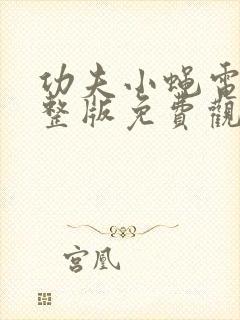 功夫小蝇電
整版免費觀
宮凰